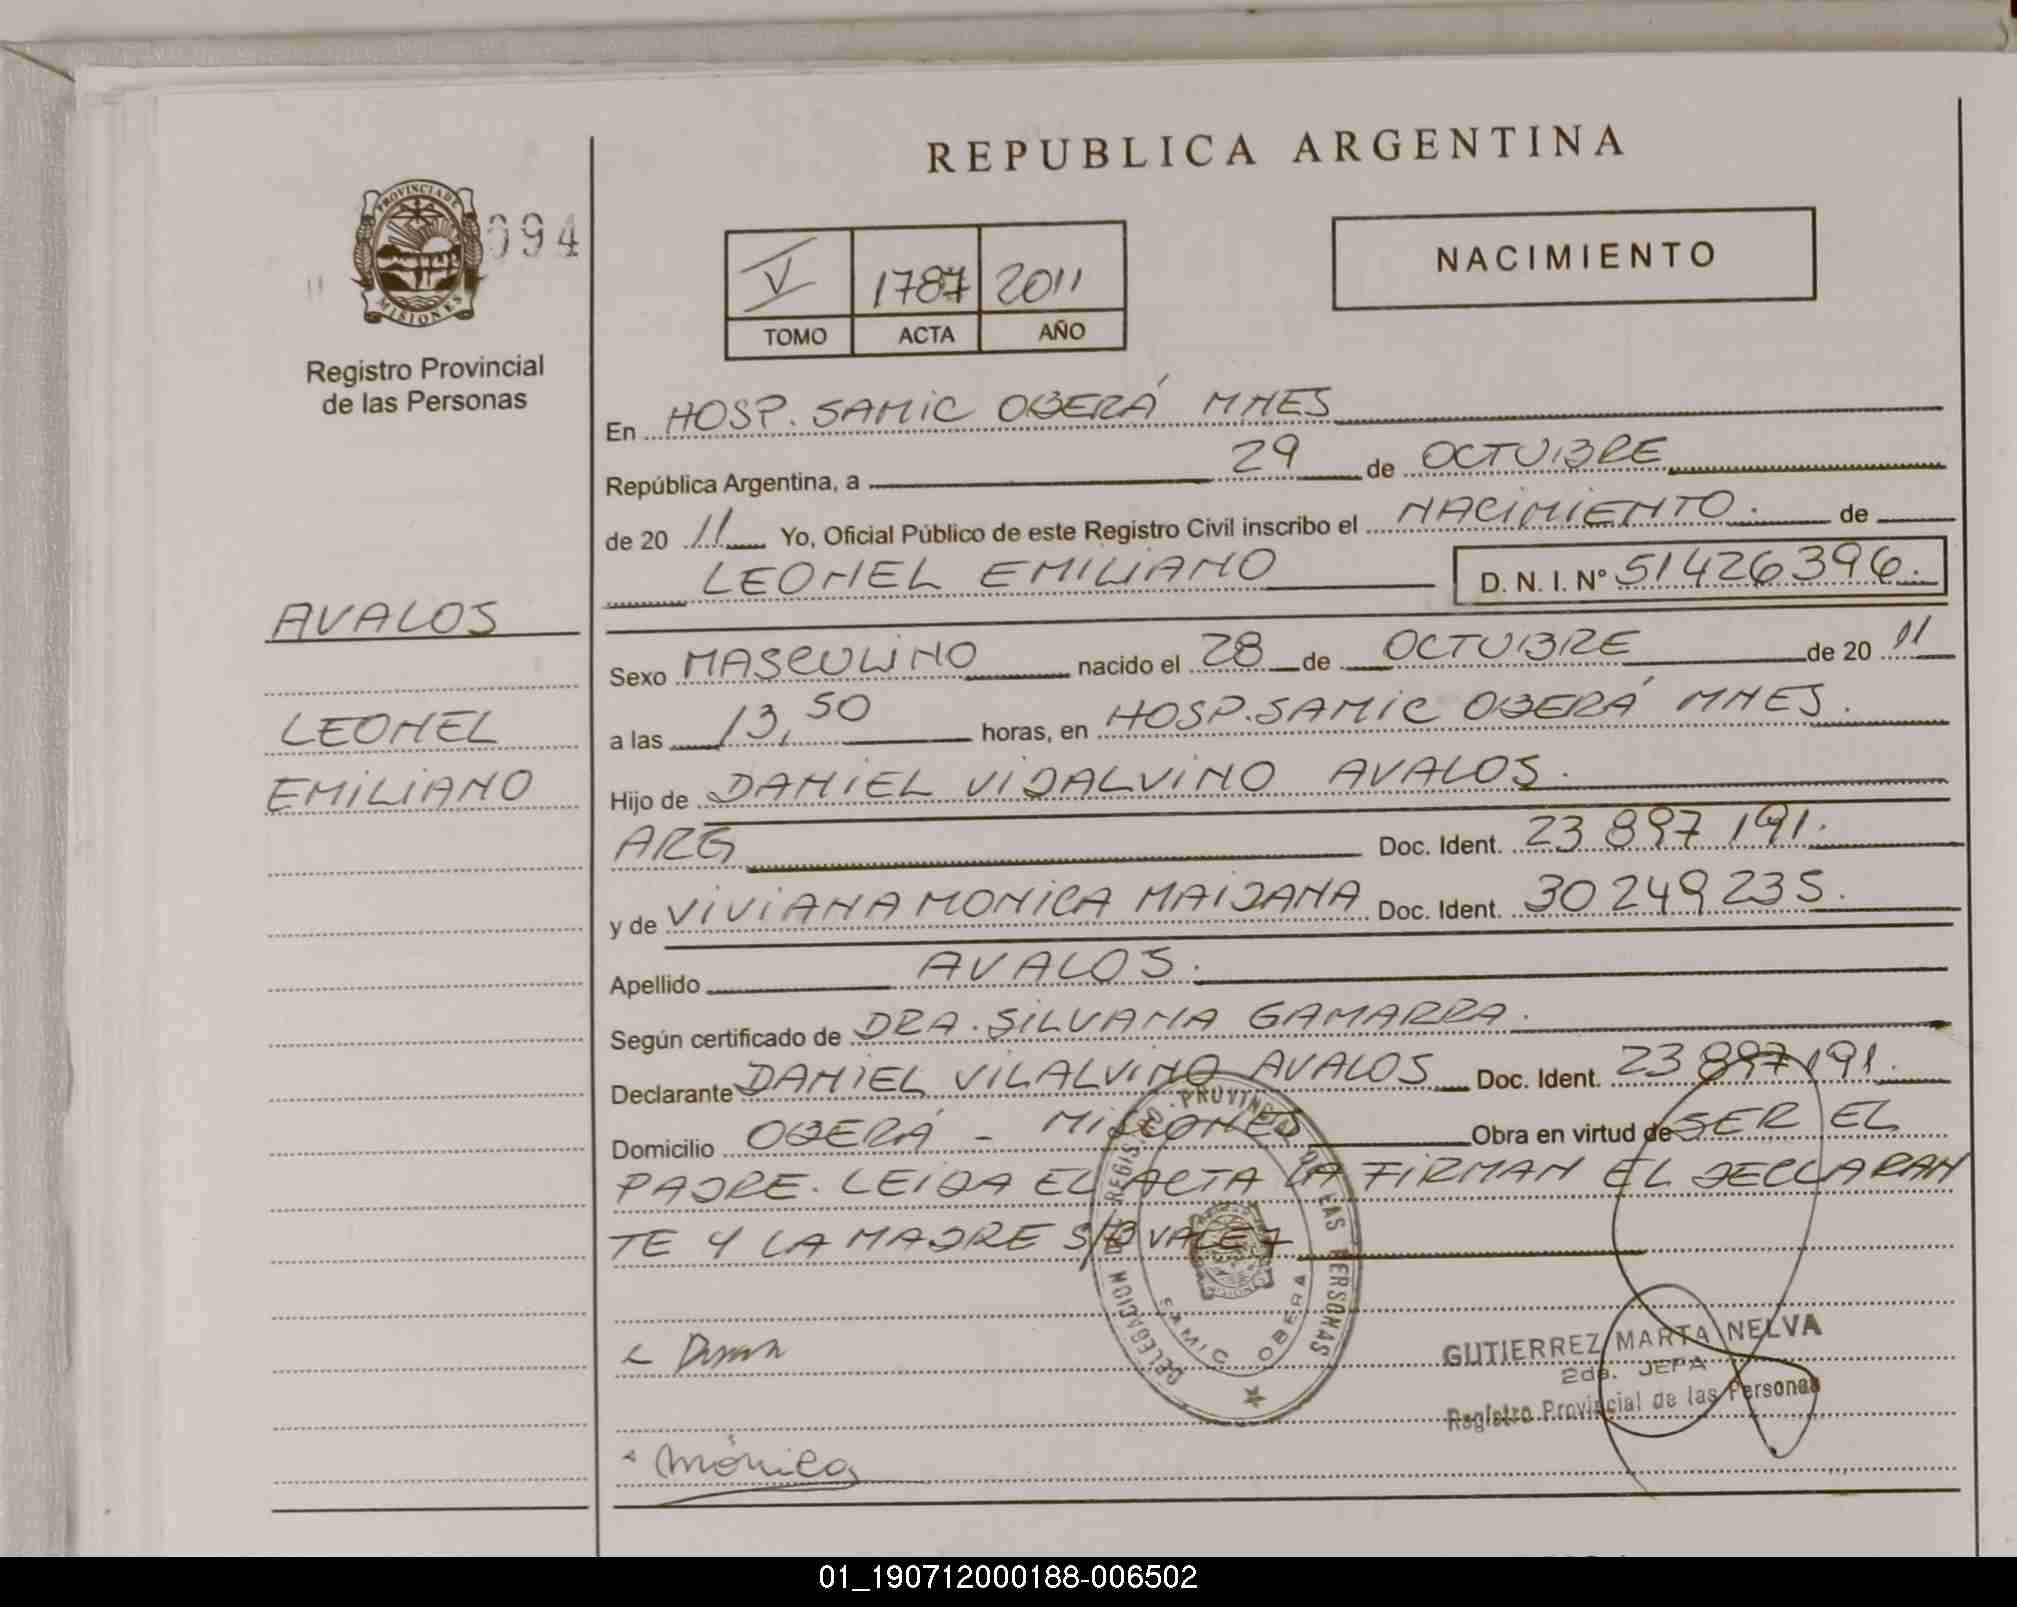 REPUBLICA ARGENTINA
PROVINCIA DE
MISIONES
094
Registro Provincial
de las Personas
V 1787 2011
TOMO ACTA AÑO
NACIMIENTO
En HOSP. SAMIC OBERÁ MNES
República Argentina, a 29 de OCTUBRE
de 20 11 Yo, Oficial Público de este Registro Civil inscribo el NACIMIENTO. de
LEONEL EMILIANO D. N. I. Nº 51426396.
AVALOS
LEONEL
EMILIANO
Sexo MASCULINO nacido el 28 de OCTUBRE de 20 11
a las 13,50 horas, en HOSP. SAMIC OBERÁ MNES.
Hijo de DANIEL VIDALVINO AVALOS.
ARG Doc. Ident. 23 897 191.
y de VIVIANA MONICA MAIDANA Doc. Ident. 30 249 235.
Apellido AVALOS.
Según certificado de DRA. SILVANA GAMARRA.
Declarante DANIEL VILALVINO AVALOS Doc. Ident. 23 897 191.
Domicilio OBERÁ - MISIONES Obra en virtud de SER EL
PADRE. LEIDA EL ACTA LA FIRMAN EL DECLARAN
TE Y LA MADRE S/B VALE 7
DELEGACION DEL REGISTRO PROVINCIAL DE LAS PERSONAS
SAMIC OBERA
GUTIERREZ MARTA NELVA
2da. JEFA
Registro Provincial de las Personas
Mónica
01_190712000188-006502